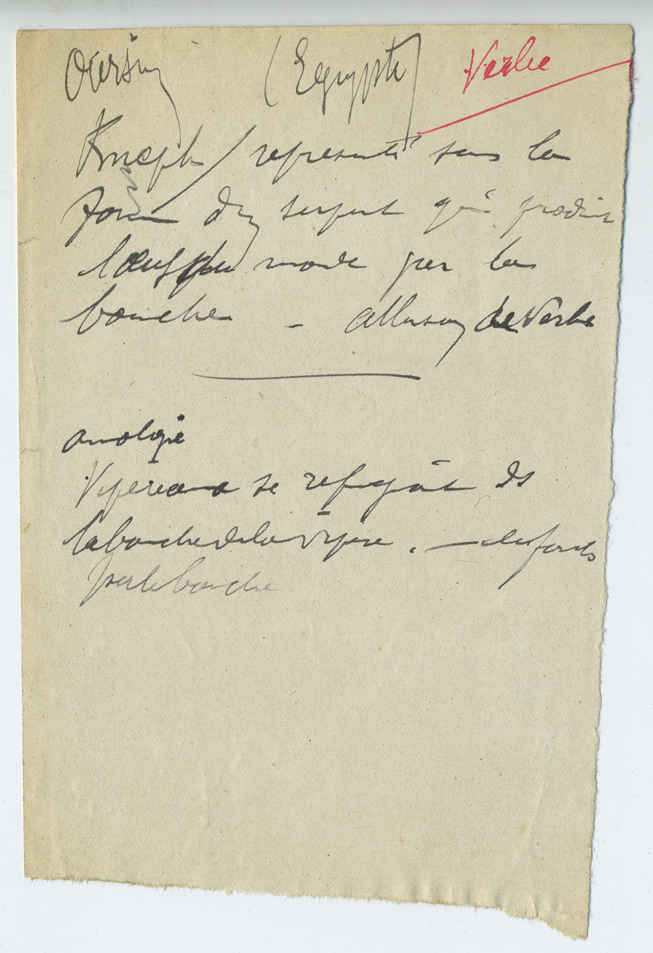 (Egypte) Verbe
Kneph / représenté sous la
forme d'un serpent qui produit
l'œuf du monde par la
bouche - allusion au Verbe
analogie
Vipereaux se réfugiant ds
la bouche de la vipère. —
par la bouche